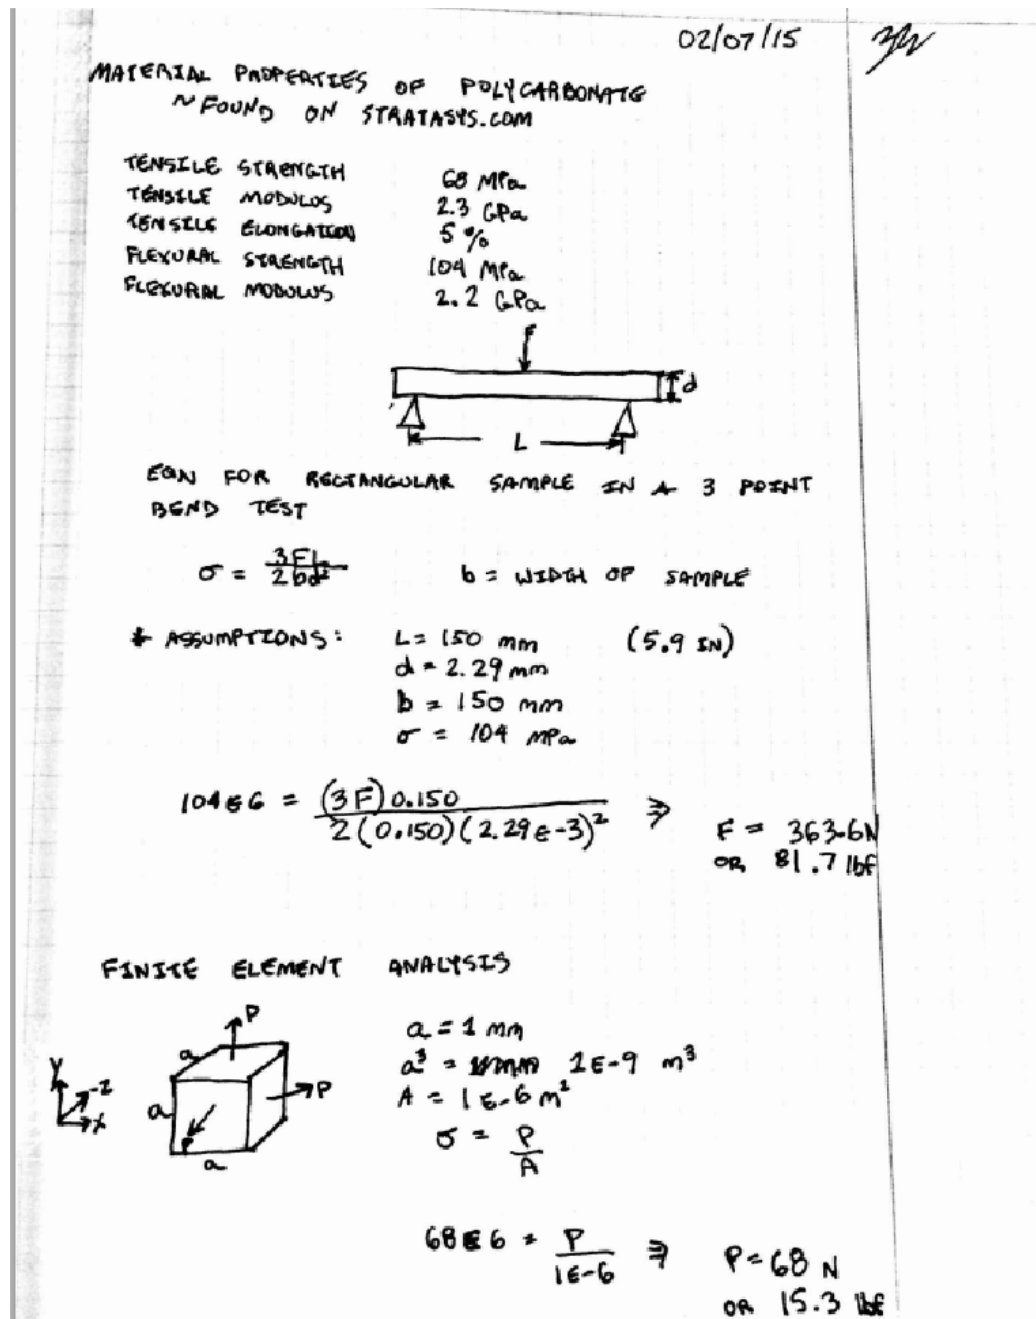 02/07/15
MATERIAL PROPERTIES OF POLYCARBONATE
~ FOUND ON STRATASYS.COM
TENSILE STRENGTH 68 MPa
TENSILE MODULUS 2.3 GPa
TENSILE ELONGATION 5%
FLEXURAL STRENGTH 104 MPa
FLEXURAL MODULUS 2.2 GPa
F
d
L
EQN FOR RECTANGULAR SAMPLE IN A 3 POINT
BEND TEST
σ = 3FL / 2bd² b = WIDTH OF SAMPLE
* ASSUMPTIONS: L = 150 mm (5.9 IN)
d = 2.29 mm
b = 150 mm
σ = 104 MPa
104E6 = (3F)0.150 / 2(0.150)(2.29E-3)² ⇒ F = 363.6N
OR 81.7 lbf
FINITE ELEMENT ANALYSIS
P
a a = 1 mm
a³ = 1E-9 m³
Y -Z X a P A = 1E-6 m²
P a σ = P / A
68E6 = P / 1E-6 ⇒ P = 68 N
OR 15.3 lbf